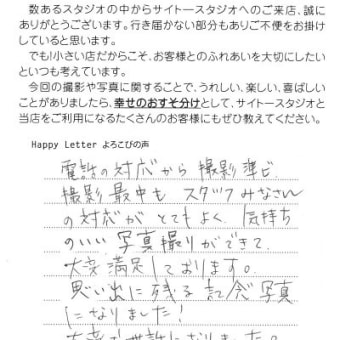 数あるスタジオの中からサイトースタジオへのご来店、誠に
ありがとうございます。行き届かない部分もありご不便をお掛け
していると思います。
でも!小さい店だからこそ、お客様とのふれあいを大切にしたい
といつも考えています。
今回の撮影や写真に関することで、うれしい、楽しい、喜ばしい
ことがありましたら、幸せのおすそ分けとして、サイトースタジオと
当店をご利用になるたくさんのお客様にもぜひ教えてください。
Happy Letter よろこびの声
電話の対応から撮影準び、
撮影最中も スタッフみなさん
の対応が とてもよく、気持ち
のいい 写真撮りができて、
大変満足しております。
思い出に残る記念写真
になりました!
大変お世話になりました。